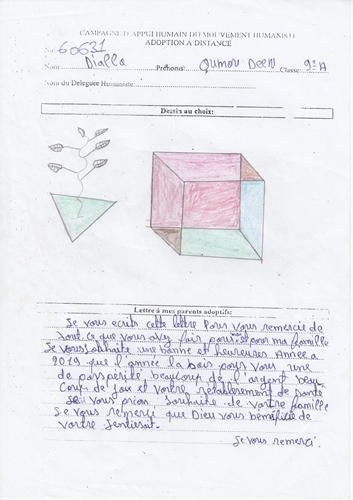 CAMPAGNE D'APPUI HUMAIN DU MOUVEMENT HUMANISTE
ADOPTION A DISTANCE
No: 60631
Nom: Diallo Prénoms: Oumou Classe: 9e A
Nom du Déléguée Humaniste:
Dessin au choix:
Lettre à mes parents adoptifs:
Je vous ecrits cette lettre Pour vous remercie de
tout ce que vous avez fair pour moi pour ma famille
Je vous souhaite une bonne et heureuses Annee a
2019 que l'année la bois pour vous une
de posperité, beaucoup de l'argent beau
coup de et vortre retablissement de santé
se vous prion, souhaite de vortre famille
Je vous remerci que Dieu vous benificie de
vortre
Je vous remerci.